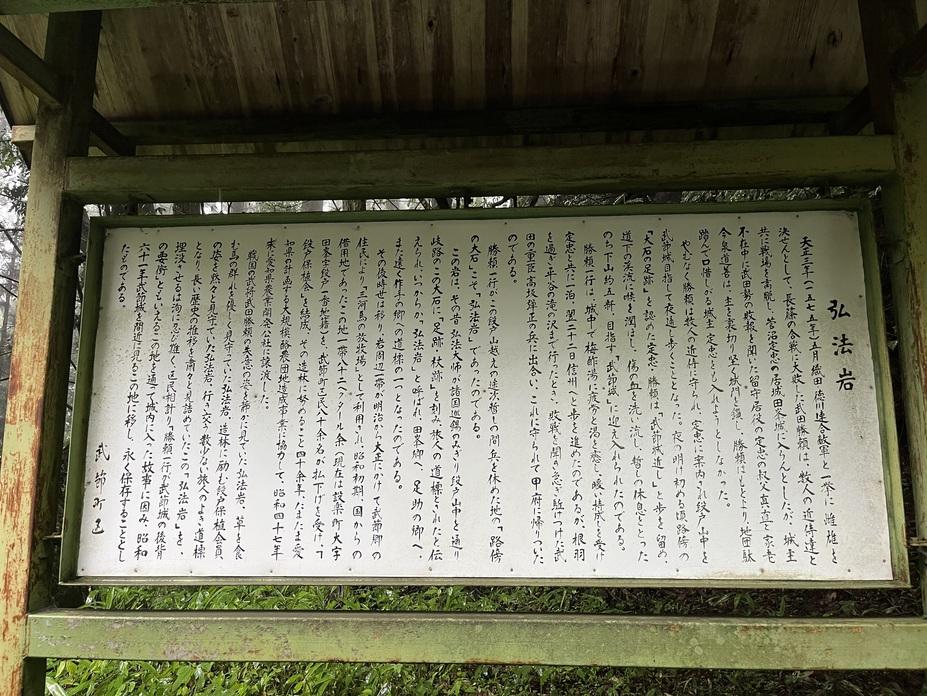 弘法岩
天正三年(一五七五年)五月織田 徳川連合軍と一挙に 雌雄を
決せんとして、長篠の合戦に大敗した武田勝頼は、数人の近侍達と
共に戦場を離脱し、菅沼定忠の居城田峯城に入らんとしたが、城主
不在中に武田勢の敗報を聞いた留守居役の定忠の叔父定直と家老
今泉道善は、主を裏切り堅く城門を鎖し、勝頼はもとより地団駄
踏んで口惜しがる城主 定忠をも入れようとしなかった。
やむなく勝頼は数人の近侍に守られ、定忠に案内され段戸山中を
武節城目指して夜道を歩くこととなった。夜の明け初める頃路傍の
「大石の足跡」を認めた定忠と勝頼は、「武節城近し」と歩を留め、
道下の渓流に喉を潤し、傷の血を洗い流し、暫しの休息をとった
のち下山約五粁、目指す「武節城」に迎え入れられたのである。
勝頼一行は、城中で梅酢湯に疲労と渇を癒し、暖い持成しを受け
定忠と共に一泊、翌二十二日信州へと歩を進めたのであるが、根羽
を過ぎ平谷の滝の沢まで行ったとき、敗戦を聞き急ぎ駈つけた武
田の重臣高坂弾正の兵に出合い、これに守られて甲府に帰りついた
のである。
勝頼一行がこの段戸山越えの途次暫しの間兵を休めた地の、路傍
の大石こそ「弘法岩」であったのである。
この岩は、その昔弘法大師が諸国巡錫のみぎり段戸山中を通り
岐路のこの大石に、「足跡」「杖跡」を刻み、旅人への道標とされたと伝
えられ、いつからか、「弘法岩」と呼ばれ、田峯郷へ、足助の郷へ、
また遠く作手の郷への道標の一つとなったのである。
その後時世は移り、岩周辺一帯が明治から大正にかけて武節郷の
住民により「三河馬の放牧場」として利用され、昭和初期 国からの
借用地であったこの地一帯八十二ヘクタール余(現在は設楽町大字
田峯字段戸一番地籍)を、武節町区民八十余名が払下げを受け、「
段戸保植会」を結成、その造林に努めること四十余年、たまたま愛
知県の計画する大規模酪農団地造成事業に協力して、昭和四十七年
末に愛知県農業開発公社に譲渡した。
戦国の武将武田勝頼の失意の姿を静かに見ていた弘法岩、草を食
む馬の群れを優しく見守っていた弘法岩、造林に励む段戸保植会員
の姿を黙々と見守っていた弘法岩、行き交う数少ない旅人へのよき道標
となり、長い歴史の推移を粛々と見詰めていたこの「弘法岩」を、
埋没させるは洵に忍び難く、区民相計り、勝頼一行が武節城の後背
の要衝」ともいえるこの地を通って城内に入った故事に因み、昭和
六十一年武節城を間近に見るこの地に移し、永く保存することとし
たものである。
武節町区